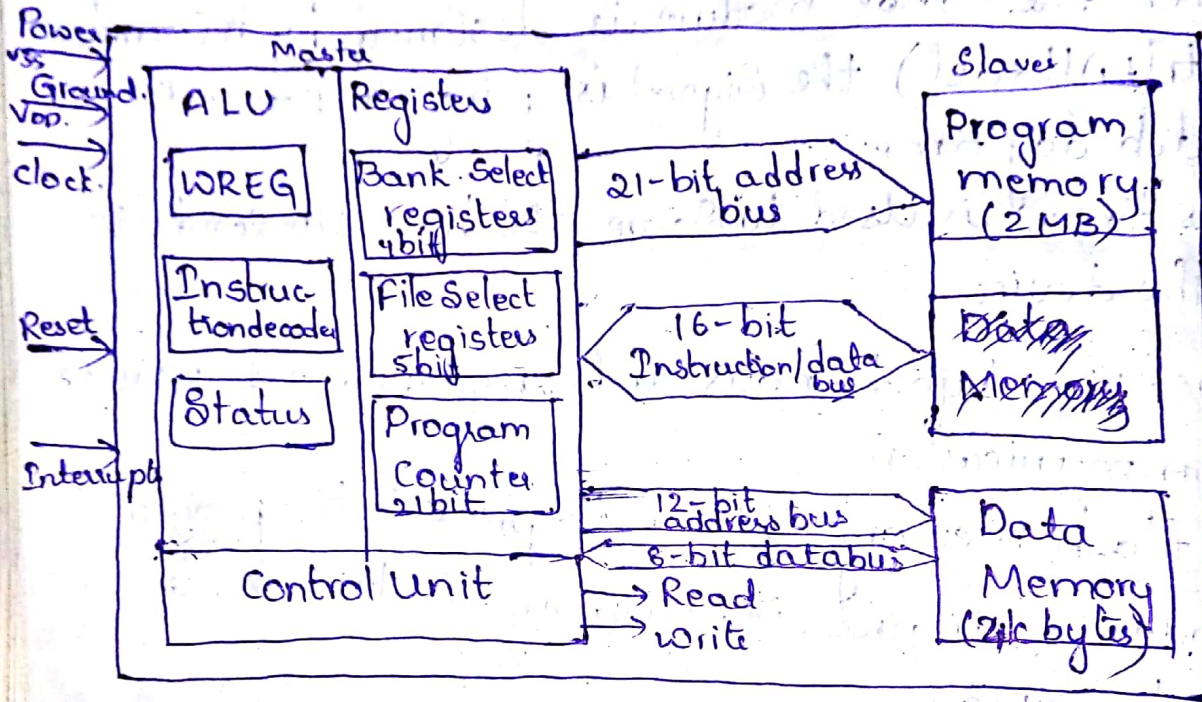 Power
VSS
Ground.
VDD.
clock.
Reset
Interrupt
Master
ALU
WREG
Instruc-
tiondecoder
Status
Registers
Bank Select
registers
4bit
File Select
registers
5bit
Program
Counter
21bit
Control Unit
21-bit address
bus
16-bit
Instruction/data
bus
12-bit
address bus
8-bit databus
Read
write
Slaves
Program
memory
(2 MB)
Data
Memory
Data
Memory
bytes)